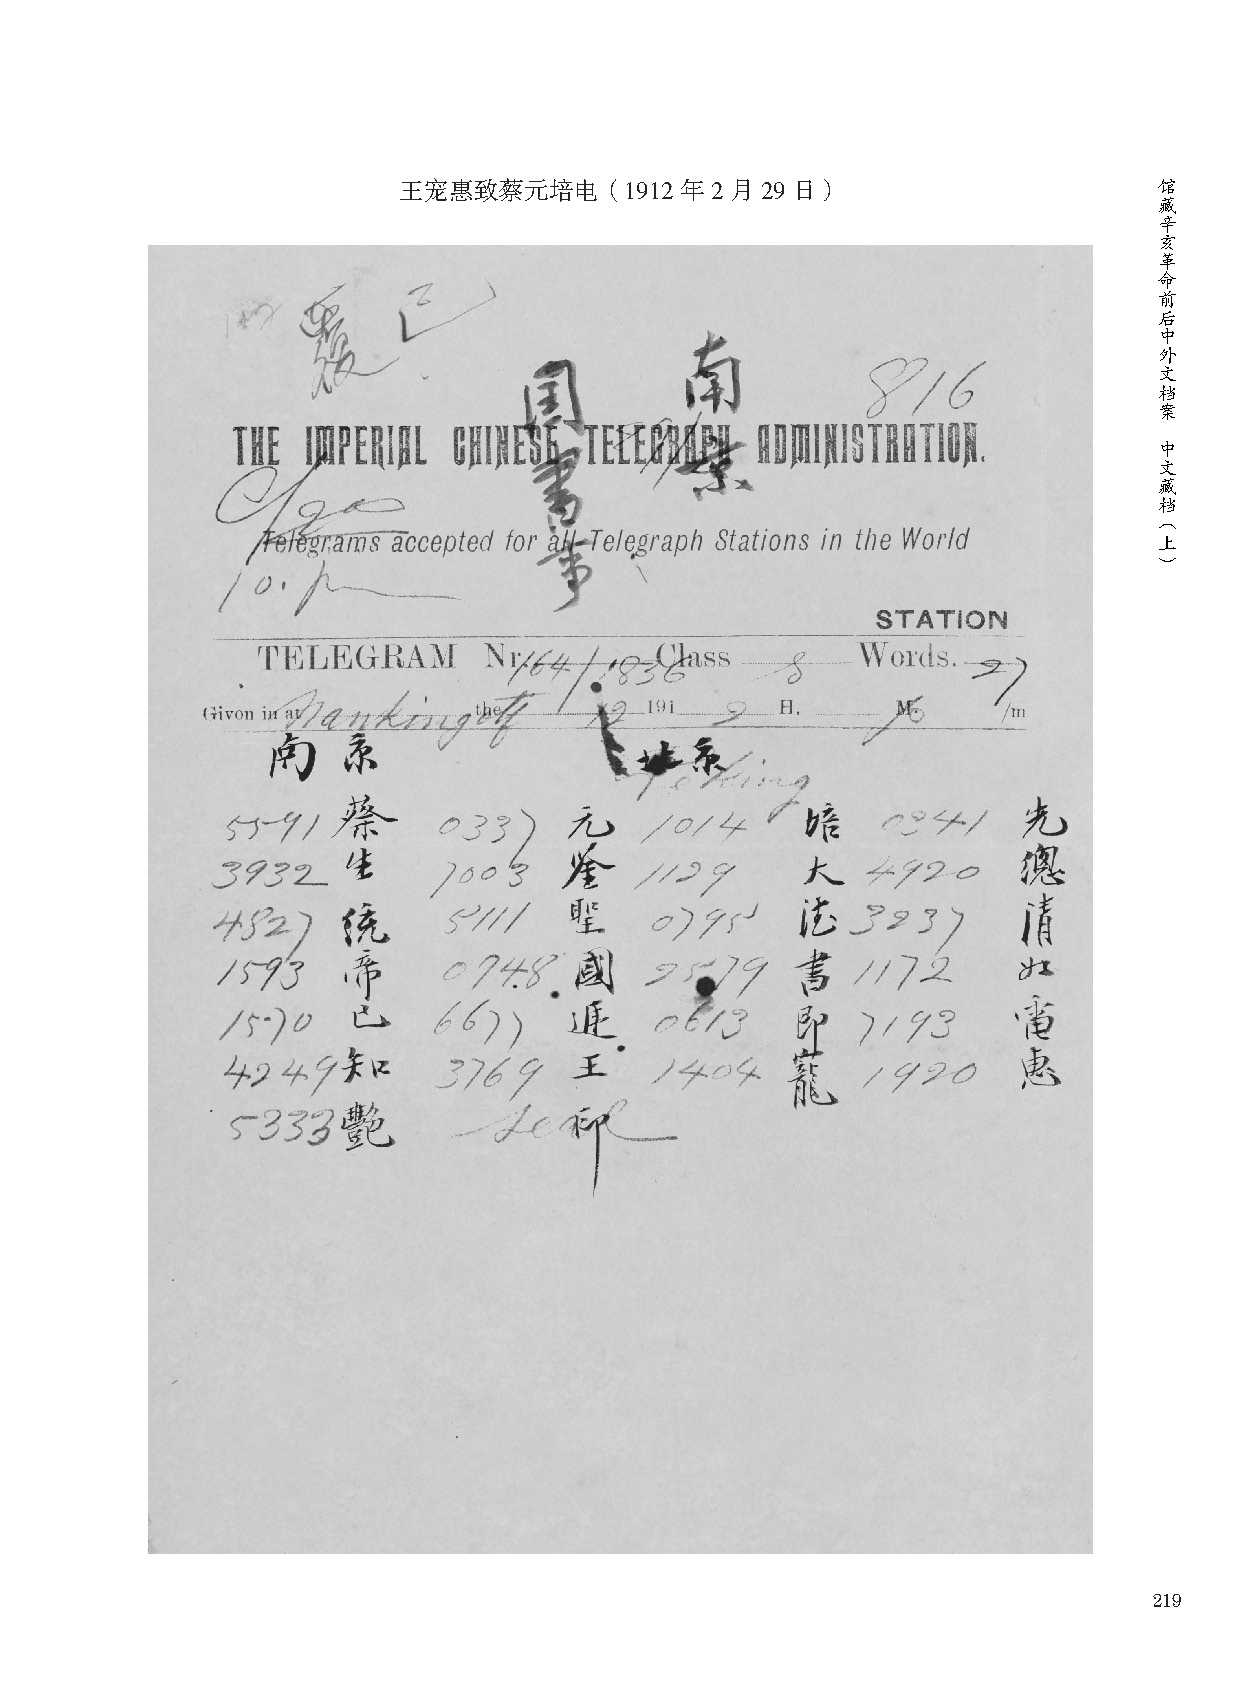 王宠惠致蔡元培电（1912 年 2 月 29 日）
馆藏辛亥革命前后中外文档案 中文藏档（上）
覆 已
南京
816
THE IMPERIAL CHINESE TELEGRAPH ADMINISTRATION.
Telegrams accepted for all Telegraph Stations in the World
10.
STATION
TELEGRAM Nr. 164/1836 Class 8 Words. 27
Given in at Nanking the 191 2 H. M. /m
南京 北京
Peking
5591 蔡 0337 元 1014 培 0341 先
3932 生 7003 鉴 1129 大 4920 總
4827 統 5111 聖 0795 3237 清
1593 帝 0748 國 2579 書 1172
1570 已 6677 遞 0613 即 7193 電
4249 知 3769 王 1404 寵 1920 惠
5333 豔 seal 印
219